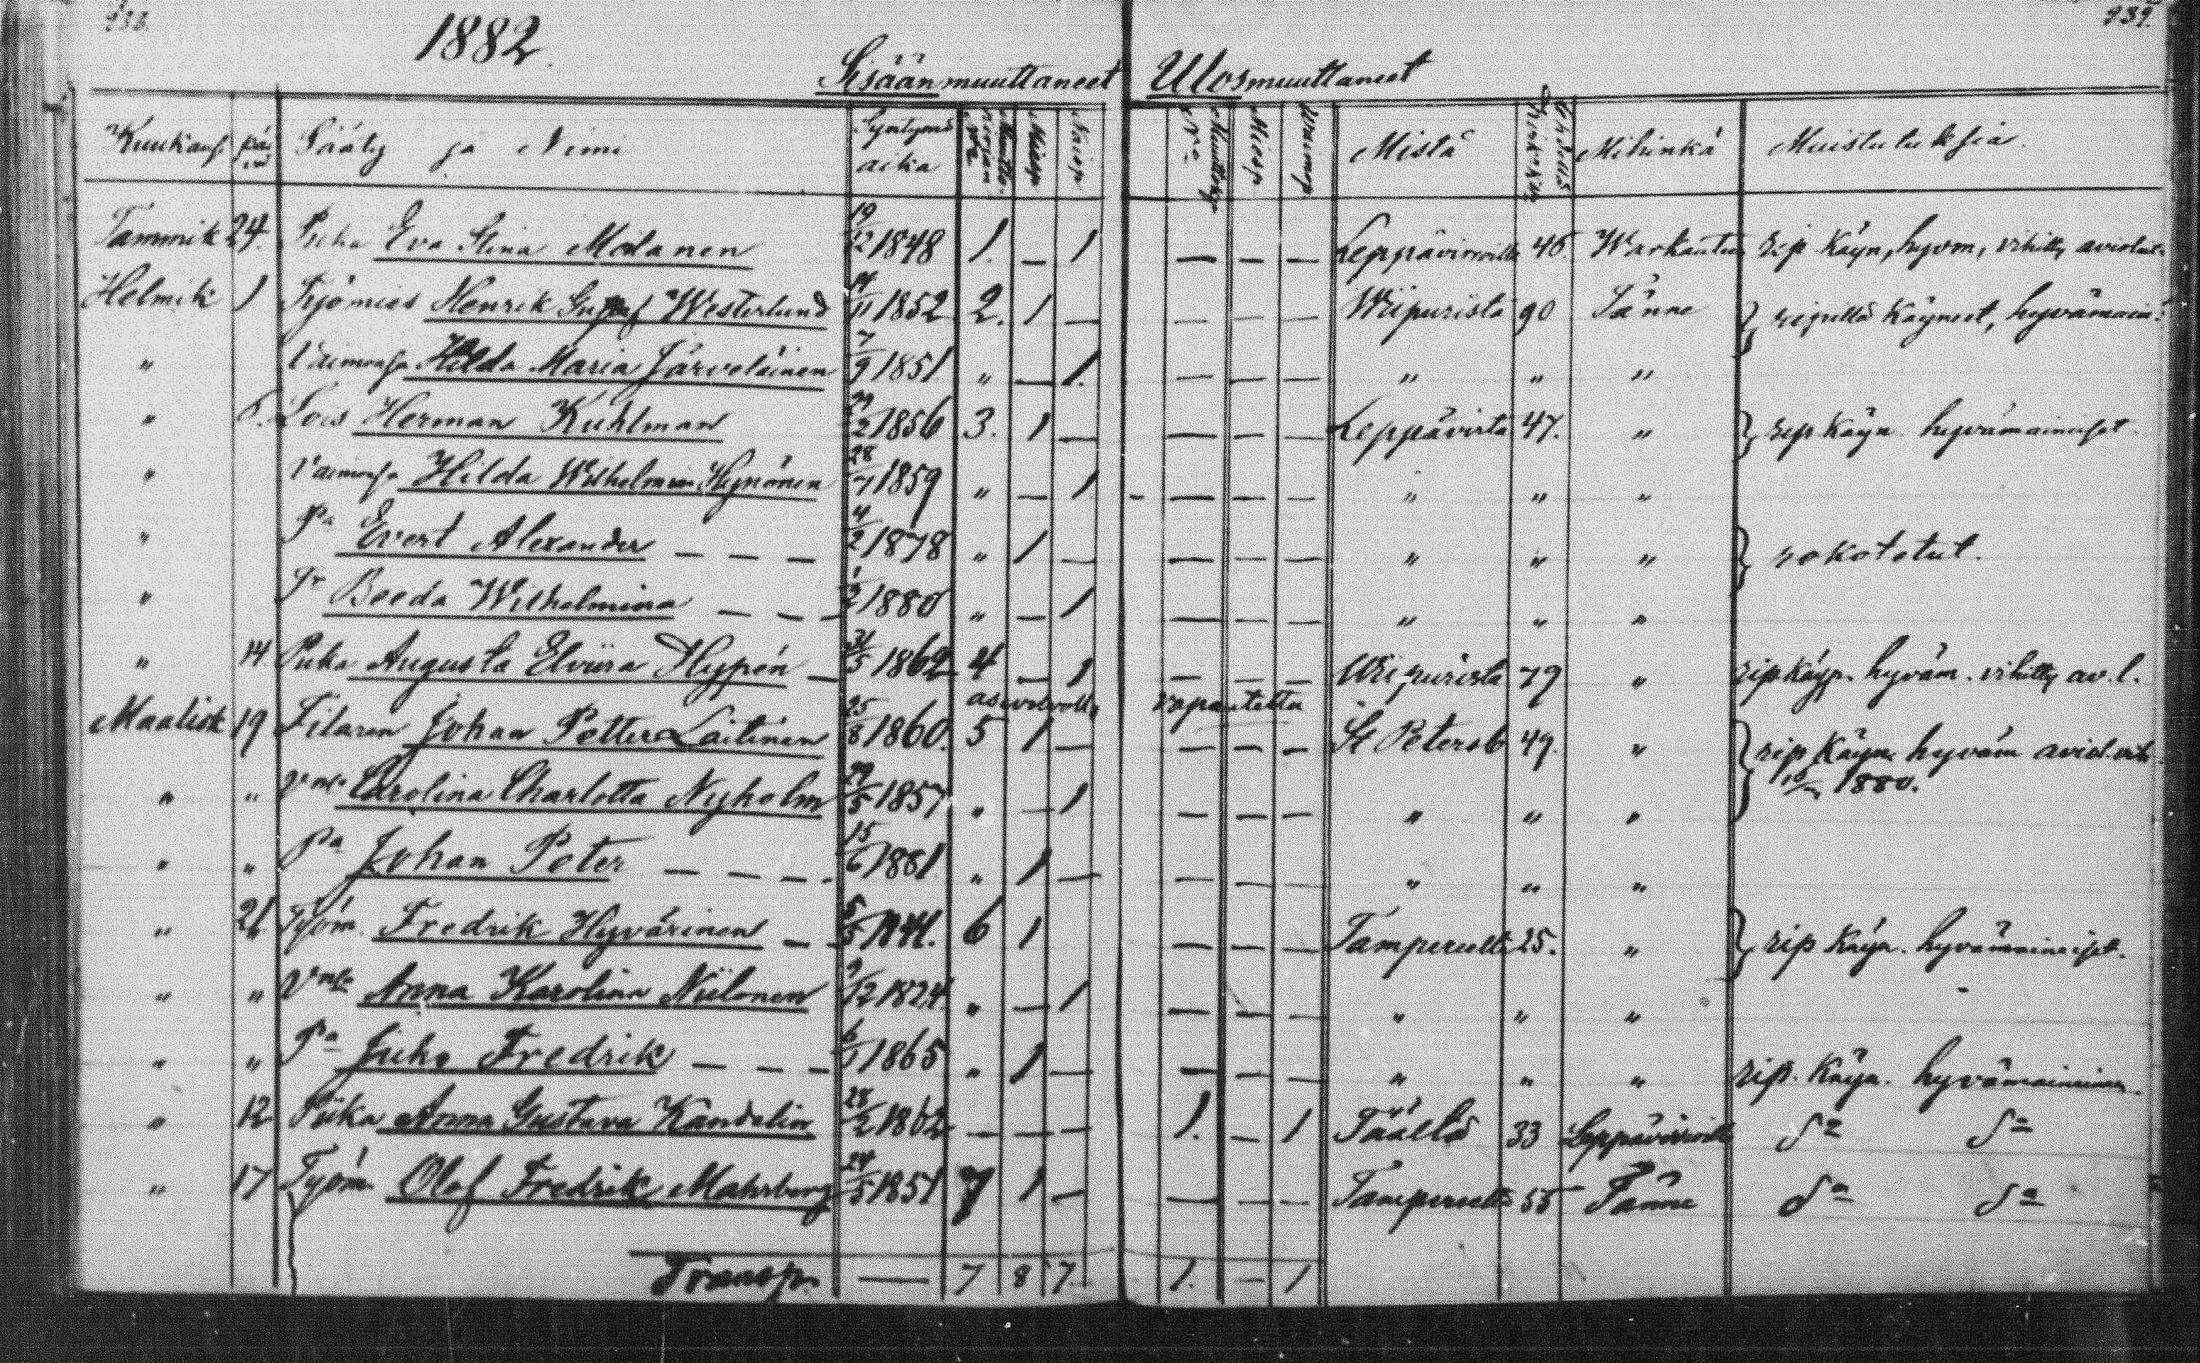 1882
939.
Sisäänmuuttaneet Ulosmuuttaneet
Kuukausi päivä Sääty ja Nimi Syntymä aika Muutto-kirjan No Miesp Naisp No Miesp Vaimop Mistä Mihinkä Muistutuksia.
Tammik 24. Piika Eva Stina Molanen 19/12 1848 1. — 1 — — — Leppävirroilta 46. Warkauteen rip käyn, hyväm, vihitty aviol.
Helmik 1 Työmies Henrik Gustaf Westerlund 14/11 1852 2. 1 — — — — Wiipurista 90 Tänne ripillä käyneet, hyvämain:
„ Vaimonsa Hilda Maria Järveläinen 7/9 1851 „ — 1. — — — „ „ „
„ 6. Lois Herman Kuhlman 29/2 1856 3. 1 — — — — Leppävirta 47. „ rip käyn. hyvämaineiset
„ Vaimonsa Hilda Wilhelmina Hynönen 28/7 1859 „ — 1 — — — „ „ „
„ Pa Evert Alexander — — — 4/2 1878 „ 1 — — — — „ „ „ rokotetut.
„ Tr Beeda Wilhelmina — — — 1/2 1880 „ — 1 — — — „ „ „
„ 14 Piika Augusta Elviira Hypén — 31/5 1862 4 — 1 — — — Wiipurista 79 „ rip käyn. hyväm. vihitty av. l.
asevelvoll. vapautettu
Maalisk 19 Filaren Johan Petter Laitinen 25/8 1860. 5 1 — — — — St Petersb 49. „ rip käyn hyväm aviol. vih.
„ „ Vmsa Carolina Charlotta Nyholm 29/5 1857 „ — 1 — — — „ „ „ 1880.
„ „ Pa Johan Peter — — — 15/6 1881 „ 1 — — — — „ „ „
„ 21 Työm. Fredrik Hyvärinen — — 5/5 1841. 6 1 — — — Tampereelta 25. „ rip käyn. hyvämaineiset.
„ „ Vmsa Anna Karolina Niilonen 9/12 1824 „ — 1 — — — „ „ „
„ „ Pa Juho Fredrik — — — 6/1 1865 „ 1 — — — — „ „ „ rip. käyn. hyvämaineinen.
„ 12 Piika Anna Gustava Kandelin 28/2 1862 — — — 1. — 1 Täältä 33 Leppävirroille da da
„ 17 Työm. Olof Fredrik Mahrberg 24/5 1851 7 1 — — — — Tampereelta 55 Tänne da da
Transp. — 7 8 7. 1. — 1